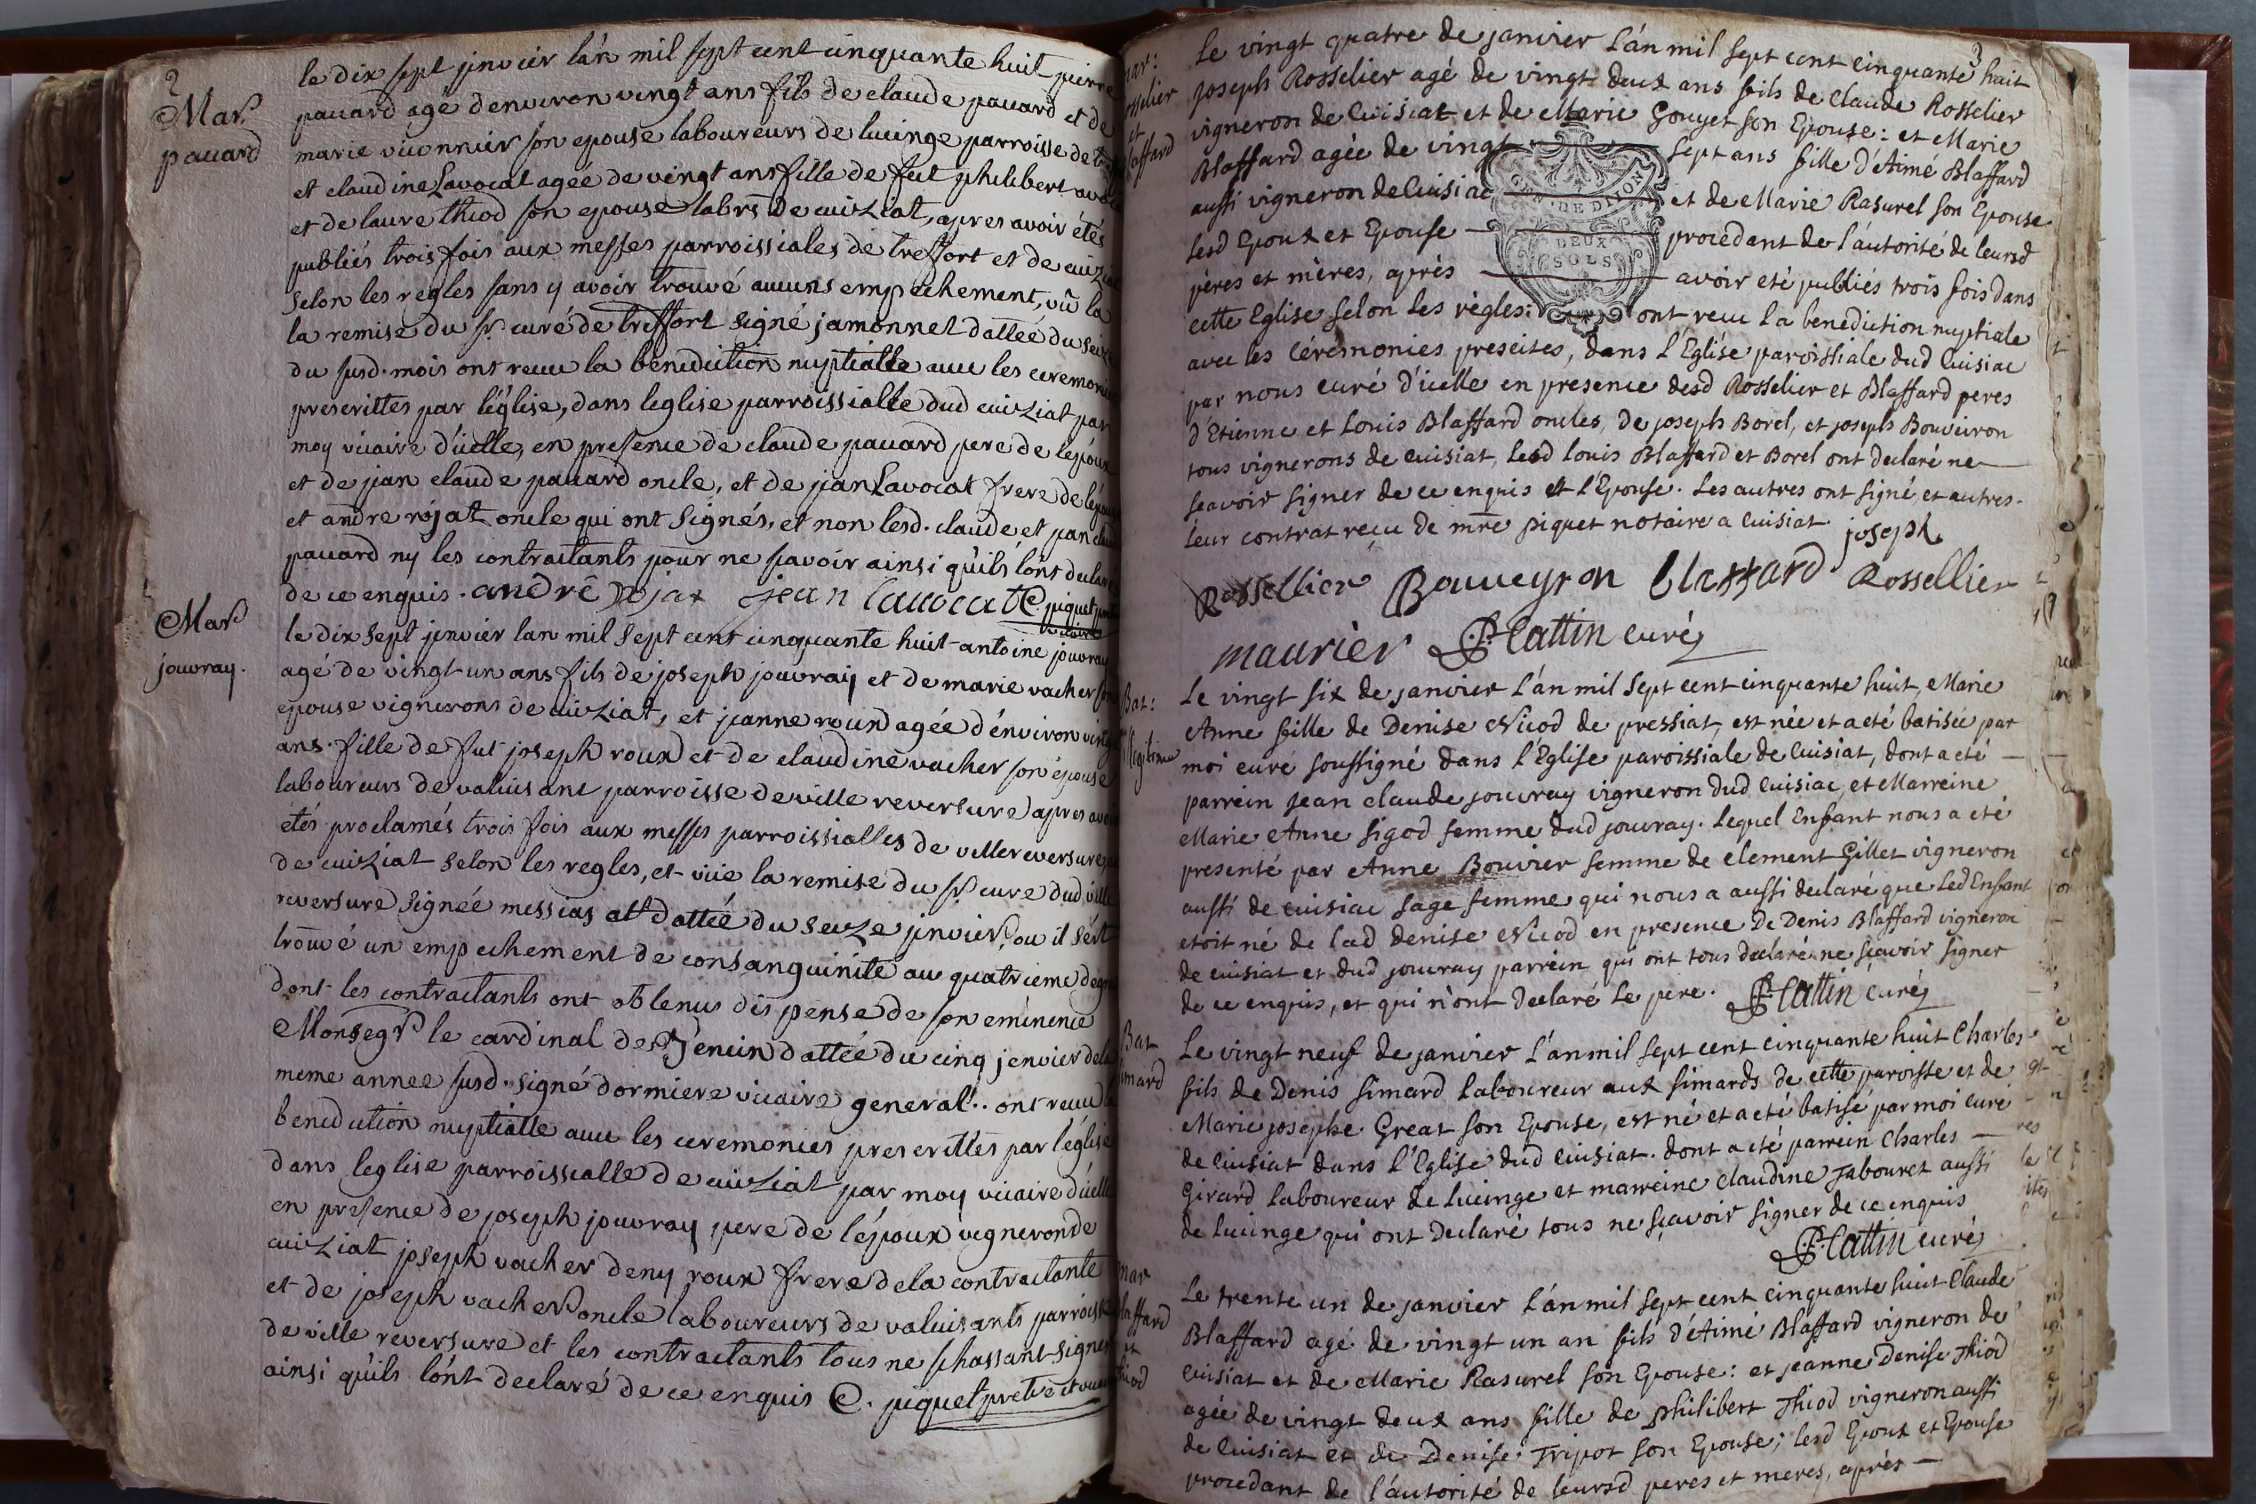 2
Mar.
pauard
le dix sept jenvier l'an mil sept cent cinquante huit pierre
pauard agé d'environ vingt ans fils de claude pauard et de
marie viconnier son epouse laboureurs de lucinge parroisse de
et claudine Lavocat agée de vingt ans fille de feu philibert
et de laure thiod son epouse labrs de cuiziat, apres avoir étés
publiés trois fois aux messes parroissiales de treffort et de cuiziat
selon les regles sans y avoir trouvé aucuns empechement, vû la
la remise du sr. curé de treffort signé jamonnet dattée du seize
du susd. mois ont receu la benediction nuptialle avec les ceremonies
prescrittes par l'église, dans leglise parroissialle dud cuiziat par
moy vicaire d'icelle, en presence de claude pauard pere de l'époux
et de jean claude pauard oncle, et de jean Lavocat frere de l'épouse
et andre rojat oncle qui ont signés, et non lesd. claude et jean claude
pauard ny les contractants pour ne savoir ainsi qu'ils l'ont declaré
de ce enquis. andrê Rojat jean lauocat C. piquet
Mar.
jouvray.
le dix sept jenvier lan mil sept cent cinquante huit antoine jouvray
agé de vingt un ans fils de joseph jouvray et de marie vacher son
epouse vignerons de cuiziat, et jeanne roux agée d'environ vingt
ans fille de fut joseph roux et de claudine vacher son épouse
laboureurs de valuisant parroisse de ville reversure apres avoir
étés proclamés trois fois aux messes parroissialles de villereversure
de cuiziat selon les regles, et vüe la remise du sr. cure dud ville
reversure signée messias dattée du seize jenvier, ou il s'est
trouvé un empechement de consanguinite au quatrieme degré
dont les contractants ont obtenus dispense de son eminence
Monsegr le cardinal de Tencin dattée du cinq jenvier de la
meme annee susd. signé dormiere vicaire general.. ont receu la
benediction nuptialle avec les ceremonies prescrittes par l'église
dans leglise parroissialle de cuiziat par moy vicaire d'icelle
en presence de joseph jouvray pere de l'époux vigneron de
cuiziat joseph vacher deny roux frere de la contractante
et de joseph vacher oncle laboureurs de valuisants parroisse
de ville reversure et les contractants tous ne schassant signer
ainsi qu'ils l'ont declaré de ce enquis C. piquet pretre et vicaire
3
mar:
Rosselier
et
Blaffard
Le vingt quatre de janvier L'an mil sept cent cinquante huit
joseph Rosselier agé de vingt deux ans fils de Claude Rosselier
vigneron de Cuisiat et de Marie Gouyet son Epouse: et Marie
Blaffard agée de vingt sept ans fille d'Aimé Blaffard
aussi vigneron de Cuisiat et de Marie Rasurel son Epouse
lesd Epoux et Epouse procedant de l'autorité de leursd
pères et mères, après avoir eté publiés trois fois dans
cette Eglise selon les règles: ont recu la benediction nuptiale
GEN. DE DIJON
DEUX
SOLS
avec les Céremonies prescites, dans l'Eglise paroissiale dud Cuisiat
par nous curé d'icelle en presence desd Rosselier et Blaffard peres
d'Etienne et Louis Blaffard oncles, de joseph Borel, et joseph Bouveiron
tous vignerons de Cuisiat, lesd louis Blaffard et Borel ont declaré ne
scavoir signer de ce enquis et l'Epouse. Les autres ont signé et autres.
leur contrat reçu de mre piquet notaire a Cuisiat.
Rossellier Bouueyron blaffard joseph Rossellier
maurier P: Cattin curé
Bat:
illegitime
Le vingt six de janvier L'an mil sept cent cinquante huit, Marie
Anne fille de Denise Nicod de pressiat, est née et a eté batisée par
moi curé soussigné dans l'Eglise paroissiale de Cuisiat, dont a eté
parrein jean claude jouvray vigneron dud Cuisiat, et Marreine
Marie Anne sigod femme dud jouvray. Lequel Enfant nous a eté
presenté par Anne Bouvier femme de clement Gillet vigneron
aussi de cuisiat sage femme qui nous a aussi declaré que led Enfant
etoit né de lad denise Nicod en presence De Denis Blaffard vigneron
de cuisiat et dud jouvray parrein qui ont tous declaré ne sçavoir signer
de ce enquis, et qui n'ont declaré le pere. P: Cattin Curé
Bat
simard
Le vingt neuf de janvier L'an mil sept cent cinquante huit Charles
fils de Denis simard laboureur aux simards de cette paroisse et de
Marie josephe Great son Epouse, est né et a eté batisé par moi curé
de Cuisiat dans l'Eglise dud Cuisiat. dont a eté parrein Charles
Girard laboureur de lucinge et marreine Claudine jabouret aussi
de lucinge qui ont declaré tous ne sçavoir signer de ce enquis
P: Cattin curé
mar
Blaffard
et
thiod
Le trente un de janvier L'an mil sept cent cinquante huit Claude
Blaffard agé de vingt un an fils d'Aimé Blaffard vigneron de
Cuisiat et de Marie Rasurel son Epouse: et jeanne Denise Thiod
agée de vingt deux ans fille de philibert Thiod vigneron aussi
de Cuisiat et de Denise Tripot son Epouse; lesd Epoux et Epouse
procedant de l'autorité de leursd peres et meres, après